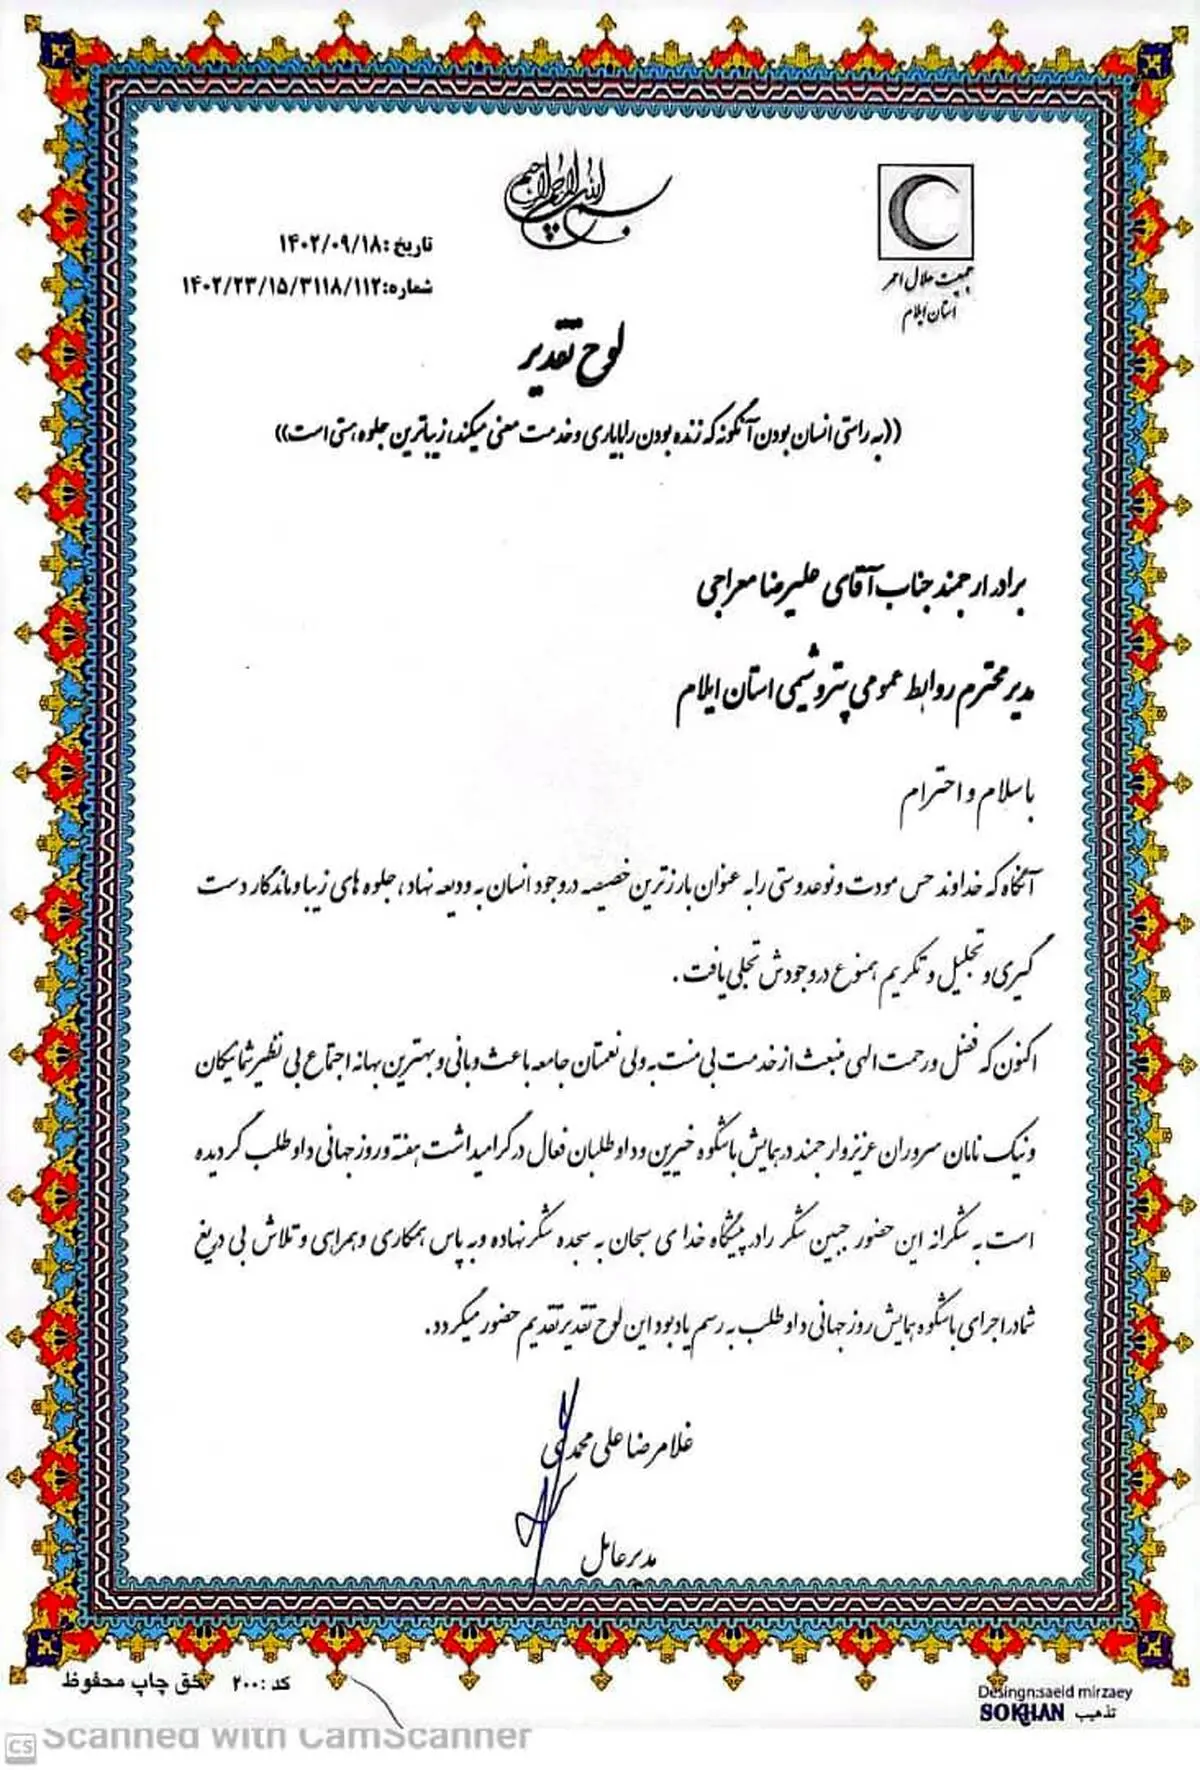 بسم الله الرحمن الرحیم
جمعیت هلال احمر
استان ایلام
تاریخ :۱۴۰۲/۰۹/۱۸
شماره:۱۴۰۲/۲۳/۱۵/۳۱۱۸/۱۱۲
لوح تقدیر
((به راستی انسان بودن آنگونه که زنده بودن را با یاری و خدمت معنی میکند، زیباترین جلوه هستی است))
برادر ارجمند جناب آقای علیرضا معراجی
مدیر محترم روابط عمومی پتروشیمی استان ایلام
با سلام و احترام
آنگاه که خداوند حس مودت و نوعدوستی را به عنوان بارزترین خصیصه در وجود انسان به ودیعه نهاد، جلوه های زیبا و ماندگار دست
گیری و تجلیل و تکریم همنوع در وجودش تجلی یافت .
اکنون که فضل و رحمت الهی منبعث از خدمت بی منت به ولی نعمتان جامعه باعث و بانی و بهترین بهانه اجتماع بی نظیر شما یکان
و نیک نامان سروران عزیز و ارجمند در همایش باشکوه خیرین و داوطلبان فعال در گرامیداشت هفته و روز جهانی داوطلب گردیده
است به شکرانه این حضور جبین شکر را در پیشگاه خدای سبحان به سجده شکر نهاده و به پاس همکاری و همراهی و تلاش بی دریغ
شما در اجرای باشکوه همایش روز جهانی داوطلب به رسم یادبود این لوح تقدیر تقدیم حضور میگردد.
غلامرضا علی محمدی
مدیرعامل
کد :۲۰۰ حق چاپ محفوظ
Desingn:saeid mirzaey
تذهیب SOKHAN
CS Scanned with CamScanner